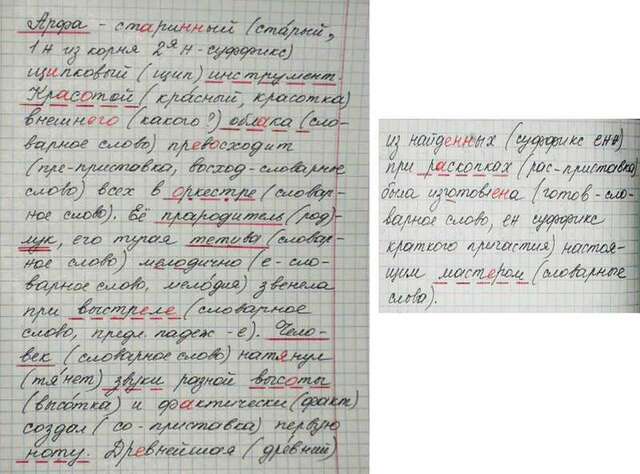 Арфа - старинный (ста́рый,
1 н из корня 2я н - суффикс)
щипковый (щип) инструмент.
Красотой (кра́сный, красотка)
внешнего (какого?) облака (сло-
варное слово) превосходит
(пре-приставка, восход-словарное
слово) всех в оркестре (словар-
ное слово). Её прародитель (род)-
лук, его тугая тетива (словар-
ное слово) мелодично (е-сло-
варное слово, мело́дия) звенела
при выстреле (словарное
слово, предл. падеж -е). Чело-
век (словарное слово) натянул
(тя́нет) звуки разной высоты
(высо́тка) и фактически (факт)
создал (со-приставка) первую
ноту. Древнейшая (дре́вний)
из найденных (суффикс енн)
при раскопках (рас-приставка)
была изготовлена (готов-сло-
варное слово, ен суффикс
краткого причастия) настоя-
щим мастером (словарные
слово).